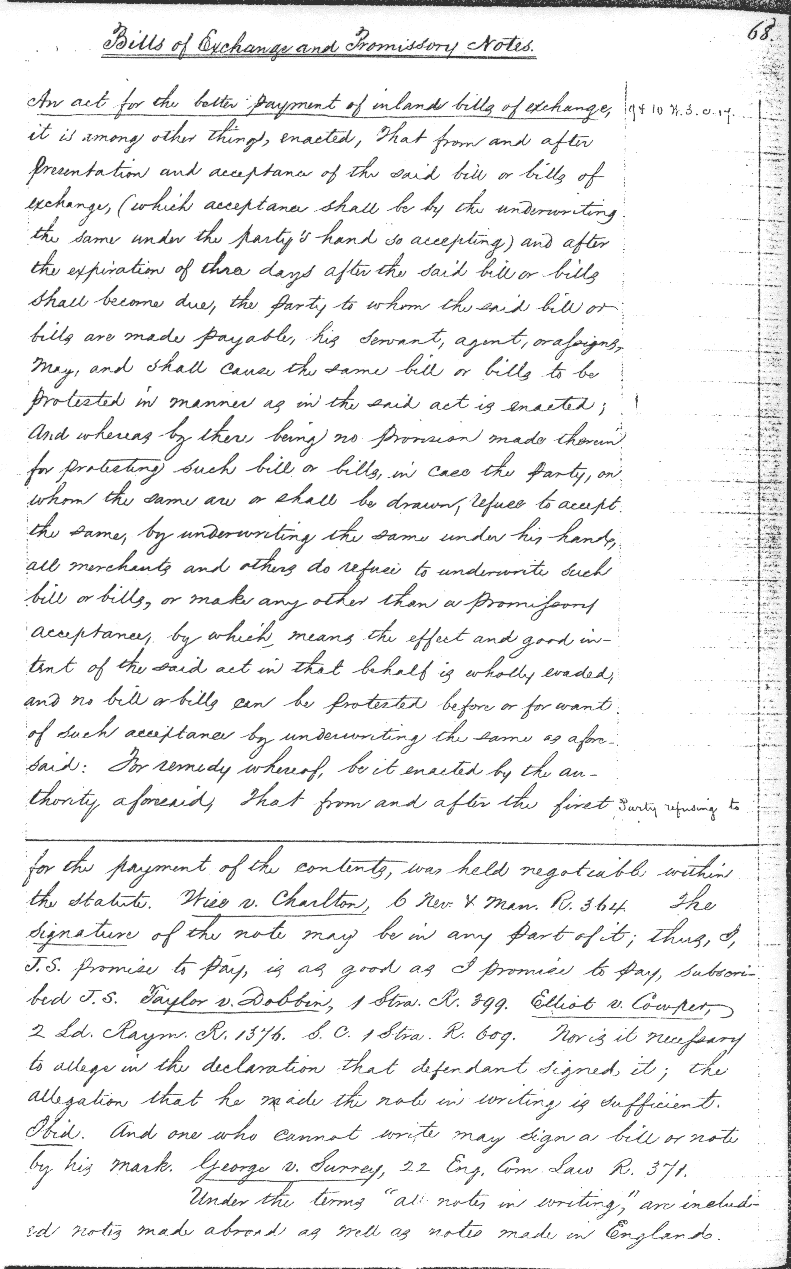 68.
Bills of Exchange and Promissory Notes.
An act for the better payment of inland bills of exchange,
9 & 10 W. 3. c. 17.
it is among other things, enacted, That from and after
presentation and acceptance of the said bill or bills of
exchange, (which acceptance shall be by the underwriting
the same under the party's hand so accepting) and after
the expiration of three days after the said bill or bills
shall become due, the party to whom the said bill or
bills are made payable, his servant, agent, or assigns,
may, and shall cause the same bill or bills to be
protested in manner as in the said act is enacted;
And whereas by there being no provision made therein
for protesting such bill or bills, in case the party, on
whom the same are or shall be drawn, refuse to accept
the same, by underwriting the same under his hand,
all merchants and others do refuse to underwrite such
bill or bills, or make any other than a promissory
acceptance, by which means the effect and good in-
tent of the said act in that behalf is wholly evaded,
and no bill or bills can be protested before or for want
of such acceptance by underwriting the same as afore-
said: For remedy whereof, be it enacted by the au-
thority aforesaid, That from and after the first
Party refusing to
for the payment of the contents, was held negotiable within
the statute. Wise v. Charlton, 6 Nev. & Man. R. 364. The
signature of the note may be in any part of it; thus, I,
J.S. promise to pay, is as good as I promise to pay, subscri-
bed J.S. Taylor v. Dobbin, 1 Stra. R. 399. Elliot v. Cowper,
2 Ld. Raym. R. 1376. S.C. 1 Stra. R. 609. Nor is it necessary
to allege in the declaration that defendant signed it; the
allegation that he made the note in writing is sufficient.
Ibid. And one who cannot write may sign a bill or note
by his mark. George v. Surrey, 22 Eng. Com Law R. 371.
Under the terms "all notes in writing," are includ-
ed notes made abroad as well as notes made in England.